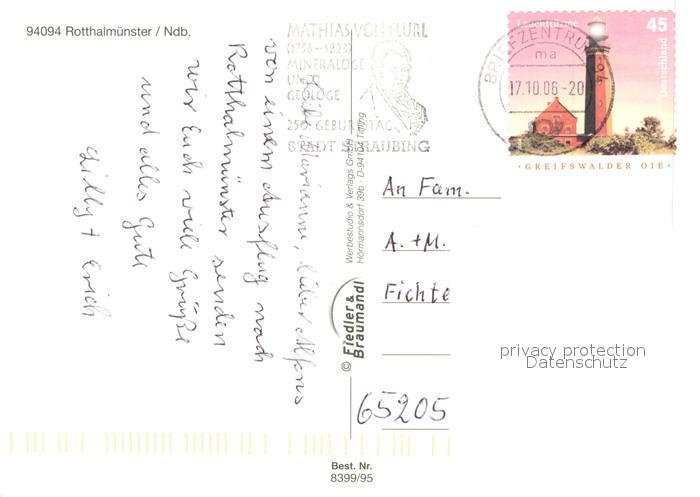 94094 Rotthalmünster / Ndb.
MATHIAS VON FLURL
(1756-1823)
MINERALOGE
UND
GEOLOGE
250. GEBURTSTAG
STADT STRAUBING
BRIEFZENTRUM
ma
17.10.06-20
Leuchttürme
45
Deutschland
· GREIFSWALDER OIE ·
Liebe Marianne, lieber Alfons
von einem Ausflug nach
Rotthalmünster senden
wir Euch viele Grüße
und alles Gute
Lilly + Erich
An Fam.
A. + M.
Fichte
65205
privacy protection
Datenschutz
Werbestudio & Verlags GmbH
Hörmannsdorf 39b · D-94104 Tittling
© Fiedler &
Braumandl
Best. Nr.
8399/95